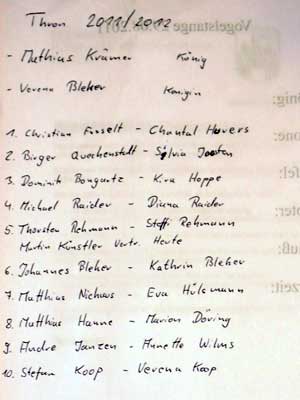 Thron 2011/2012
- Mathias Krämer König
- Verena Bleher Königin
1. Christian Fusselt - Chantal Havers
2. Birger Quechenstedt - Silvia Joosten
3. Dominik Bongartz - Kira Hoppe
4. Michael Raider - Diana Raider
5. Thorsten Rehmann - Steffi Rehmann
Martin Künstler Vertr. Heute
6. Johannes Bleher - Kathrin Bleher
7. Matthias Niehaus - Eva Hülsmann
8. Matthias Hanne - Marion Döring
9. Andre Janzen - Annette Wilms
10. Stefan Koop - Verena Koop